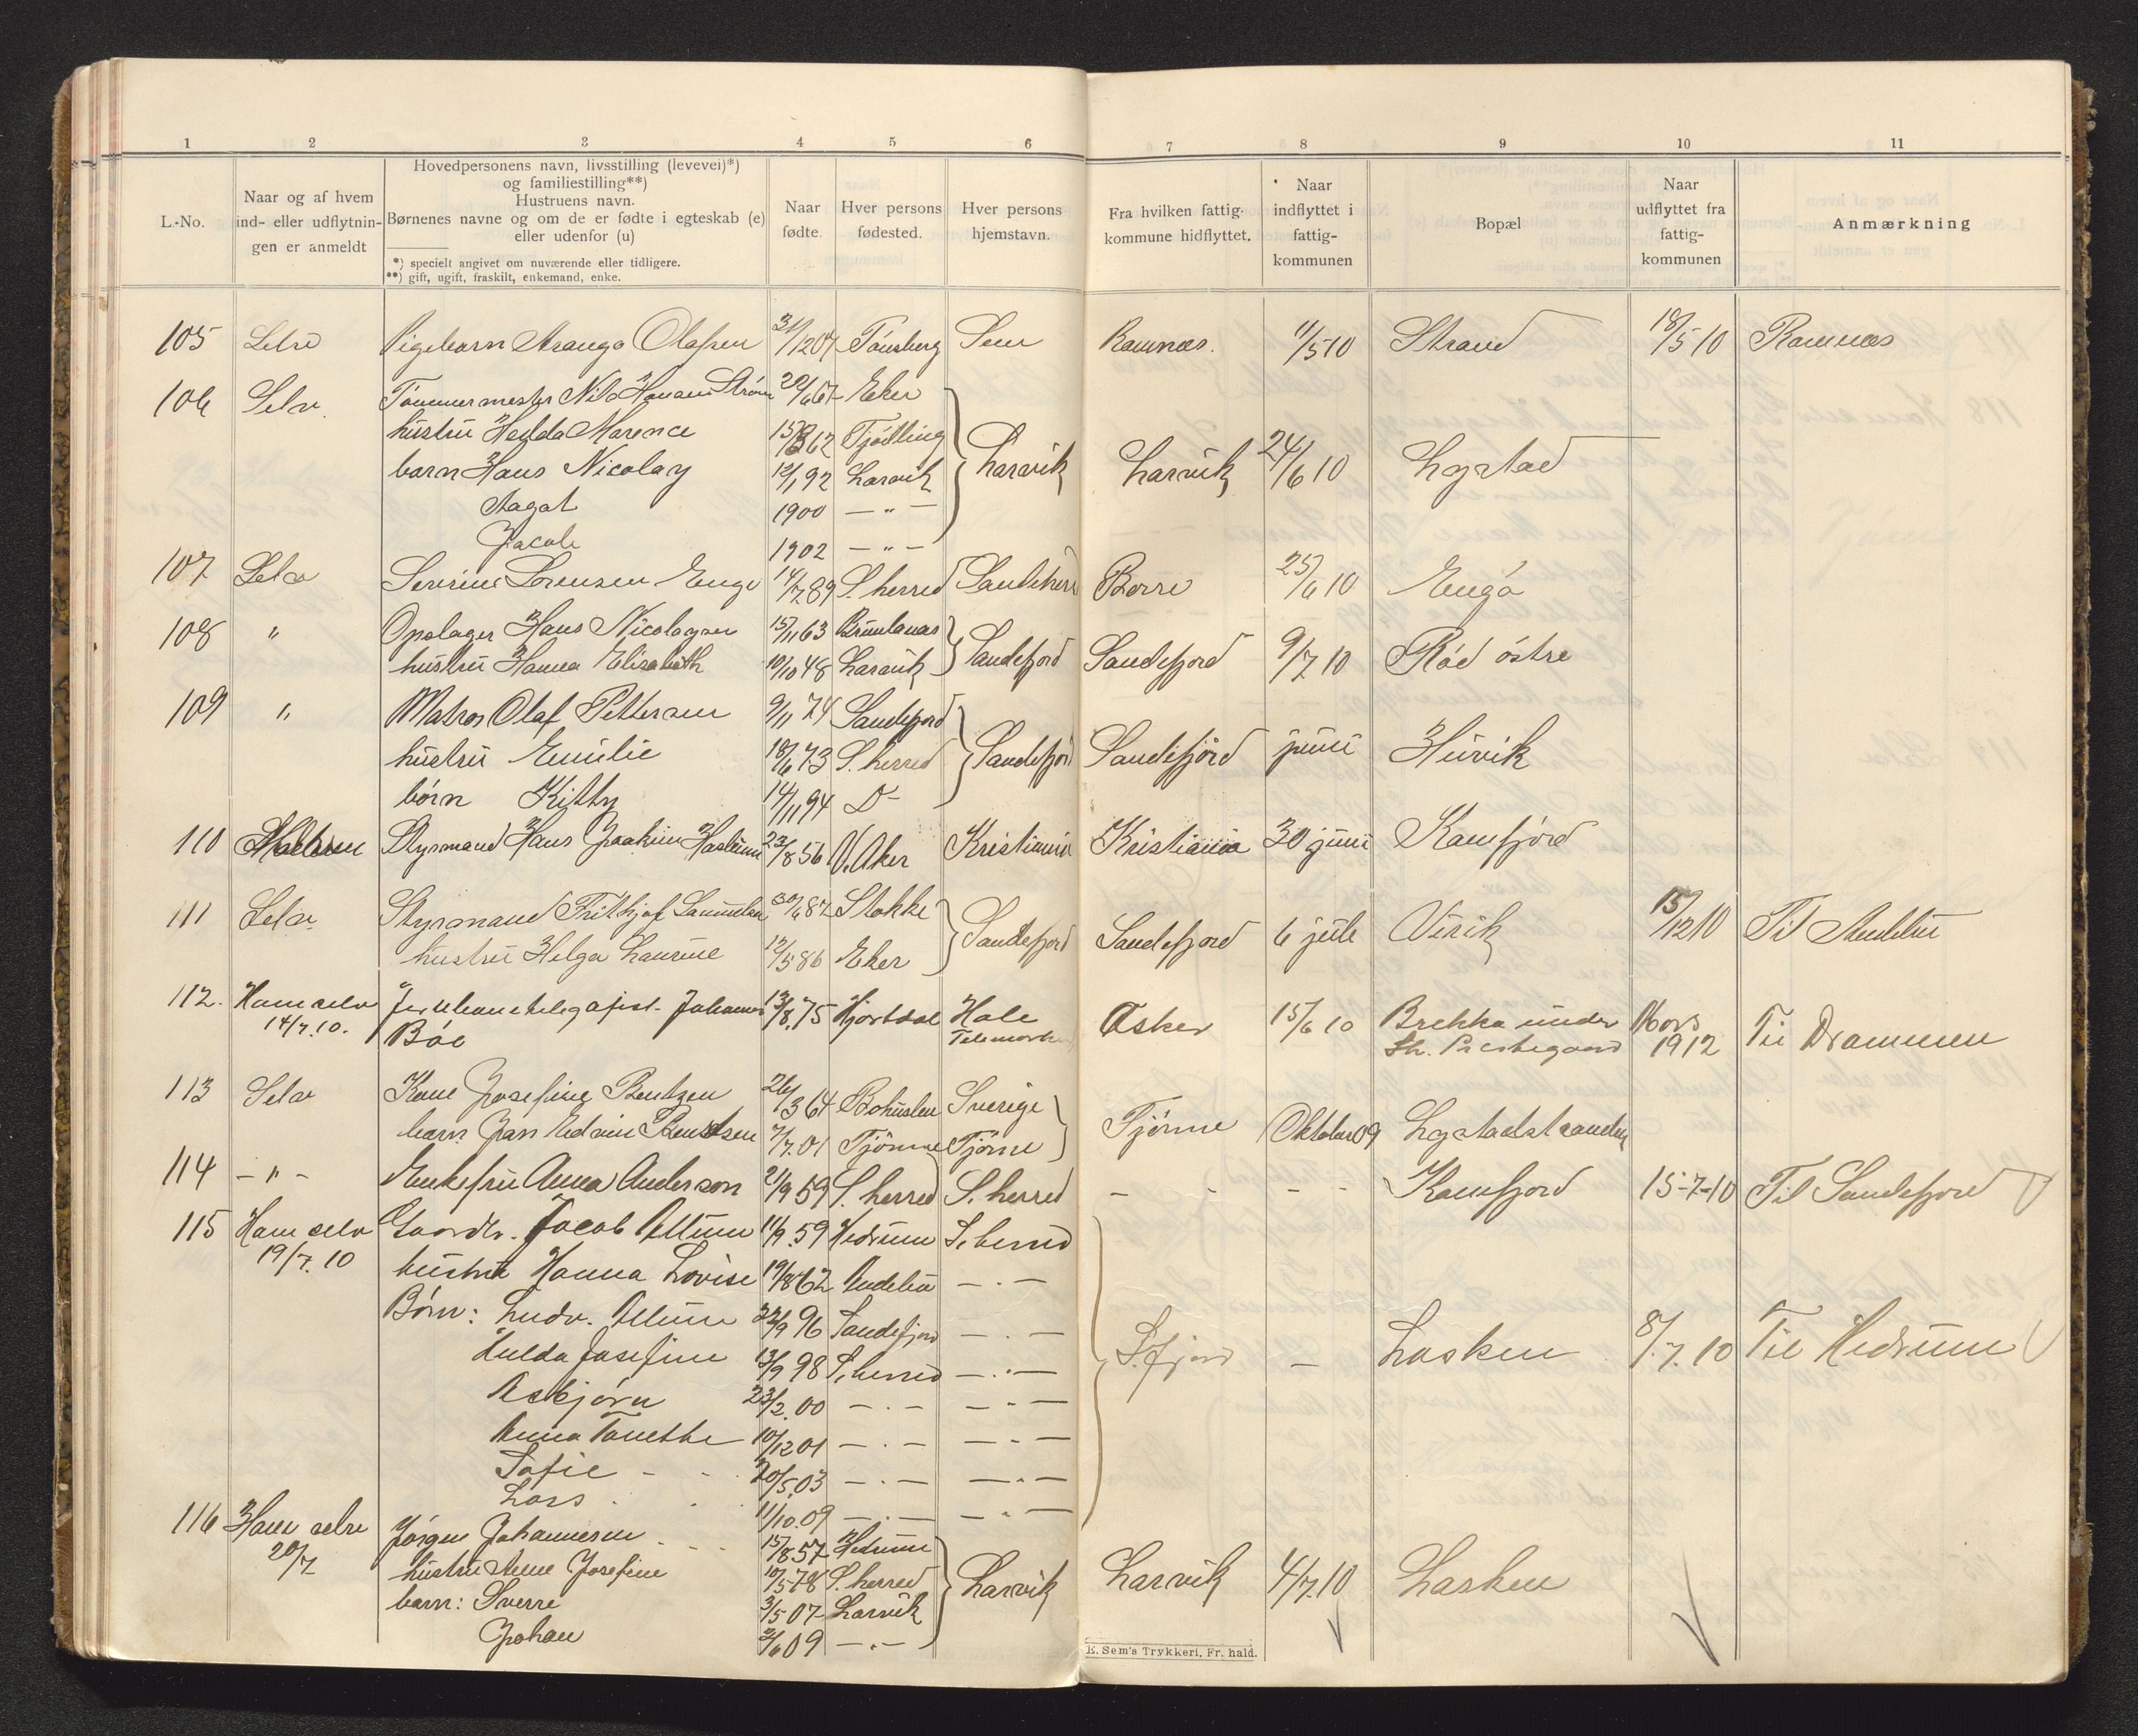 1 2 3 4 5 6 7 8 9 10 11
L.-No.
Naar og af hvem
ind- eller udflytnin-
gen er anmeldt
Hovedpersonens navn, livsstilling (levevei)*)
og familiestilling**)
Hustruens navn.
Børnenes navne og om de er fødte i egteskab (e)
eller udenfor (u)
*) specielt angivet om nuværende eller tidligere.
**) gift, ugift, fraskilt, enkemand, enke.
Naar
fødte.
Hver persons
fødested.
Hver persons
hjemstavn.
Fra hvilken fattig-
kommune hidflyttet.
Naar
indflyttet i
fattig-
kommunen
Bopæl
Naar
udflyttet fra
fattig-
kommunen
Anmærkning
105 Selv Pigebarn Olafsen 31/12 04 Tønsberg Sem Ramnæs. 11/5 10 Strand 18/5 10 Ramnæs
106 Selv Tømmermester Nils Hansen Strøm 20/6 67 Eker
hustru Hedda Marence 62 Tjødling
barn Hans Nicolay 12/1 92 Laravik Laravik Larvik 24/6 10 Lystad
Aagot 1900 — " —
Jacob 1902 — " —
107 Selv Severine Lorensen Enge 14/7 89 S. herred Sandeherr Borre 25/6 10 Engø
108 " Opslager Hans Nicolaysen 15/11 63 Brunlanæs
hustru Hanna Elisabeth 10/10 48 Laravik Sandefjord Sandefjord 9/7 10 Rød østre
109 " Matros Olaf Pettersen 9/11 74 Sandefjord
hustru Emilie 18/6 73 S. herred Sandefjord Sandefjord juni Huvik
børn Kitty 14/11 94 D-
110 Styrmand Hans Joakim Haslum 23/8 56 V. Aker Kristiania Kristiania 30 juni Kamfjord
111 Selv Styrmand Frithjof 30/6 87 Stokke
hustru Helga Laurine 12/5 86 Eker Sandefjord Sandefjord 6 juli Virik 15/12 10 Til
112. Ham selv Johannes 13/8. 75 Hjartdal Asker 15/6 10 Brekke under Mars Til Drammen
14/7. 10. Bøe Telemarken Sh. Prestegaard 1912
113 Selv Kone Josefine Bentzen 26/3 64 Bohuslen Sverige
barn Jan Edvin Bentsen 7/7. 01 Tjømme Tjøme Tjømme Oktober 09 Lystadstranden
114 — " — Enkefru Anna Anderson 21/9 59 S. herred S. herred - - - - Kamfjord 15-7-10 Til Sandefjord
115 Ham selv Gaardbr. Jacob Allum 11/9. 59 Hedrum S. herred
19/7. 10 hustru Hanna Lovise 19/8 62 Andebu — . —
Børn: Ludv. Allum 22/9 96 Sandefjord — . —
Hulda Josefine 13/9 98 S. herred — . — S. fjord — Lasken 8/7. 10 Til Hedrum
Asbjørn 23/2. 00 — . — — . —
Anna Tanethe 10/12 01 — . — — . —
Sofie - 20/5. 03 — . — — . —
Lars 11/10. 09 — . — — . —
116 Ham selv Jørgen Johannesen 15/8 57 Hedrum
20/7 hustru Anne Josefine 10/5 78 S. herred Larvik Larvik 4/7. 10 Lasken
barn: Sverre 3/5 07 Larvik
Johan 2/6 09 — . —
E. Sem's Trykkeri, Fr. hald.